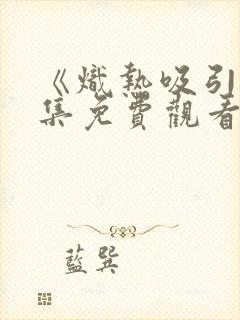 《熾熱吸引
集免費觀看
藍巽